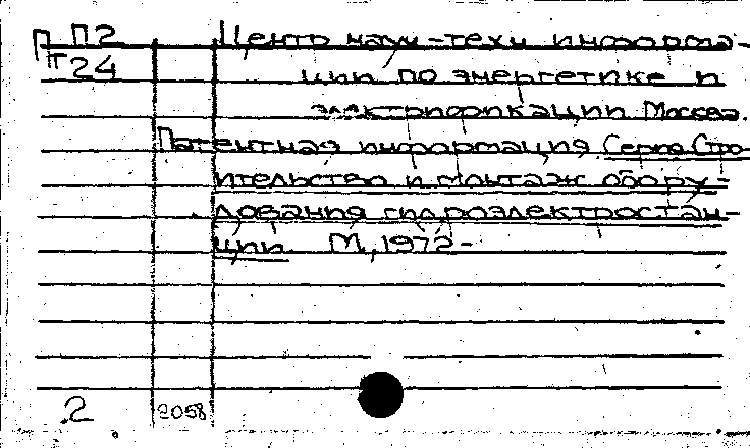 П П2
т 24
Центр науч-техн информа-
ции по энергетике и
электрификации Москва.
Патентная информация Серия Стро-
ительство и монтаж обору-
дования гидроэлектростан-
ции М, 1972-
2
2058